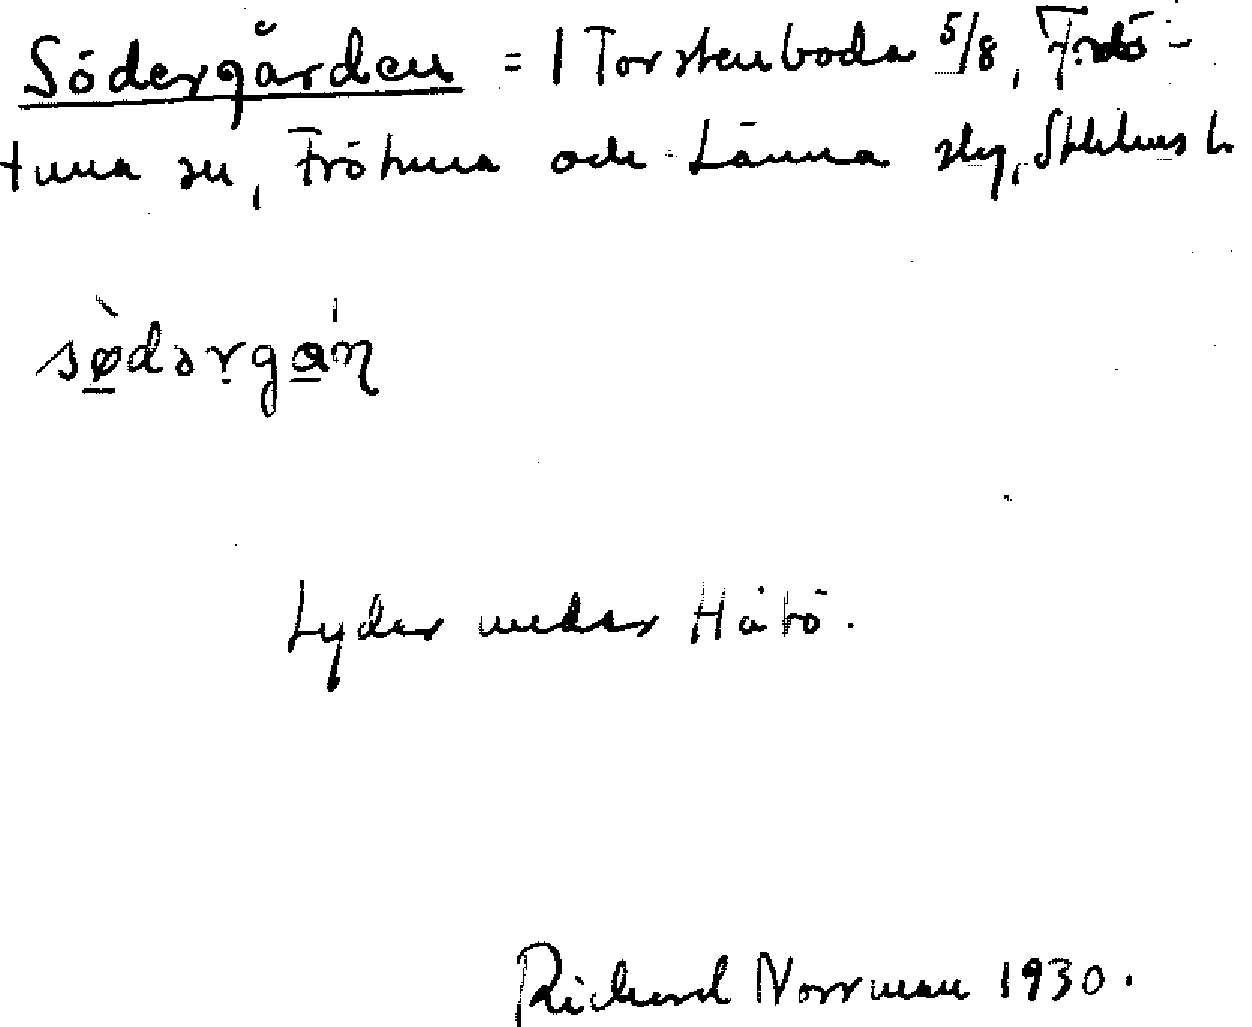 Södergården = 1 Torstenboda 5/8, Frö-
tuna sn, Frötuna och Länna slg, Sthlms l.
sø̀dərgɑ́ɳ
Lyder under Håtö.
Richard Norrman 1930.